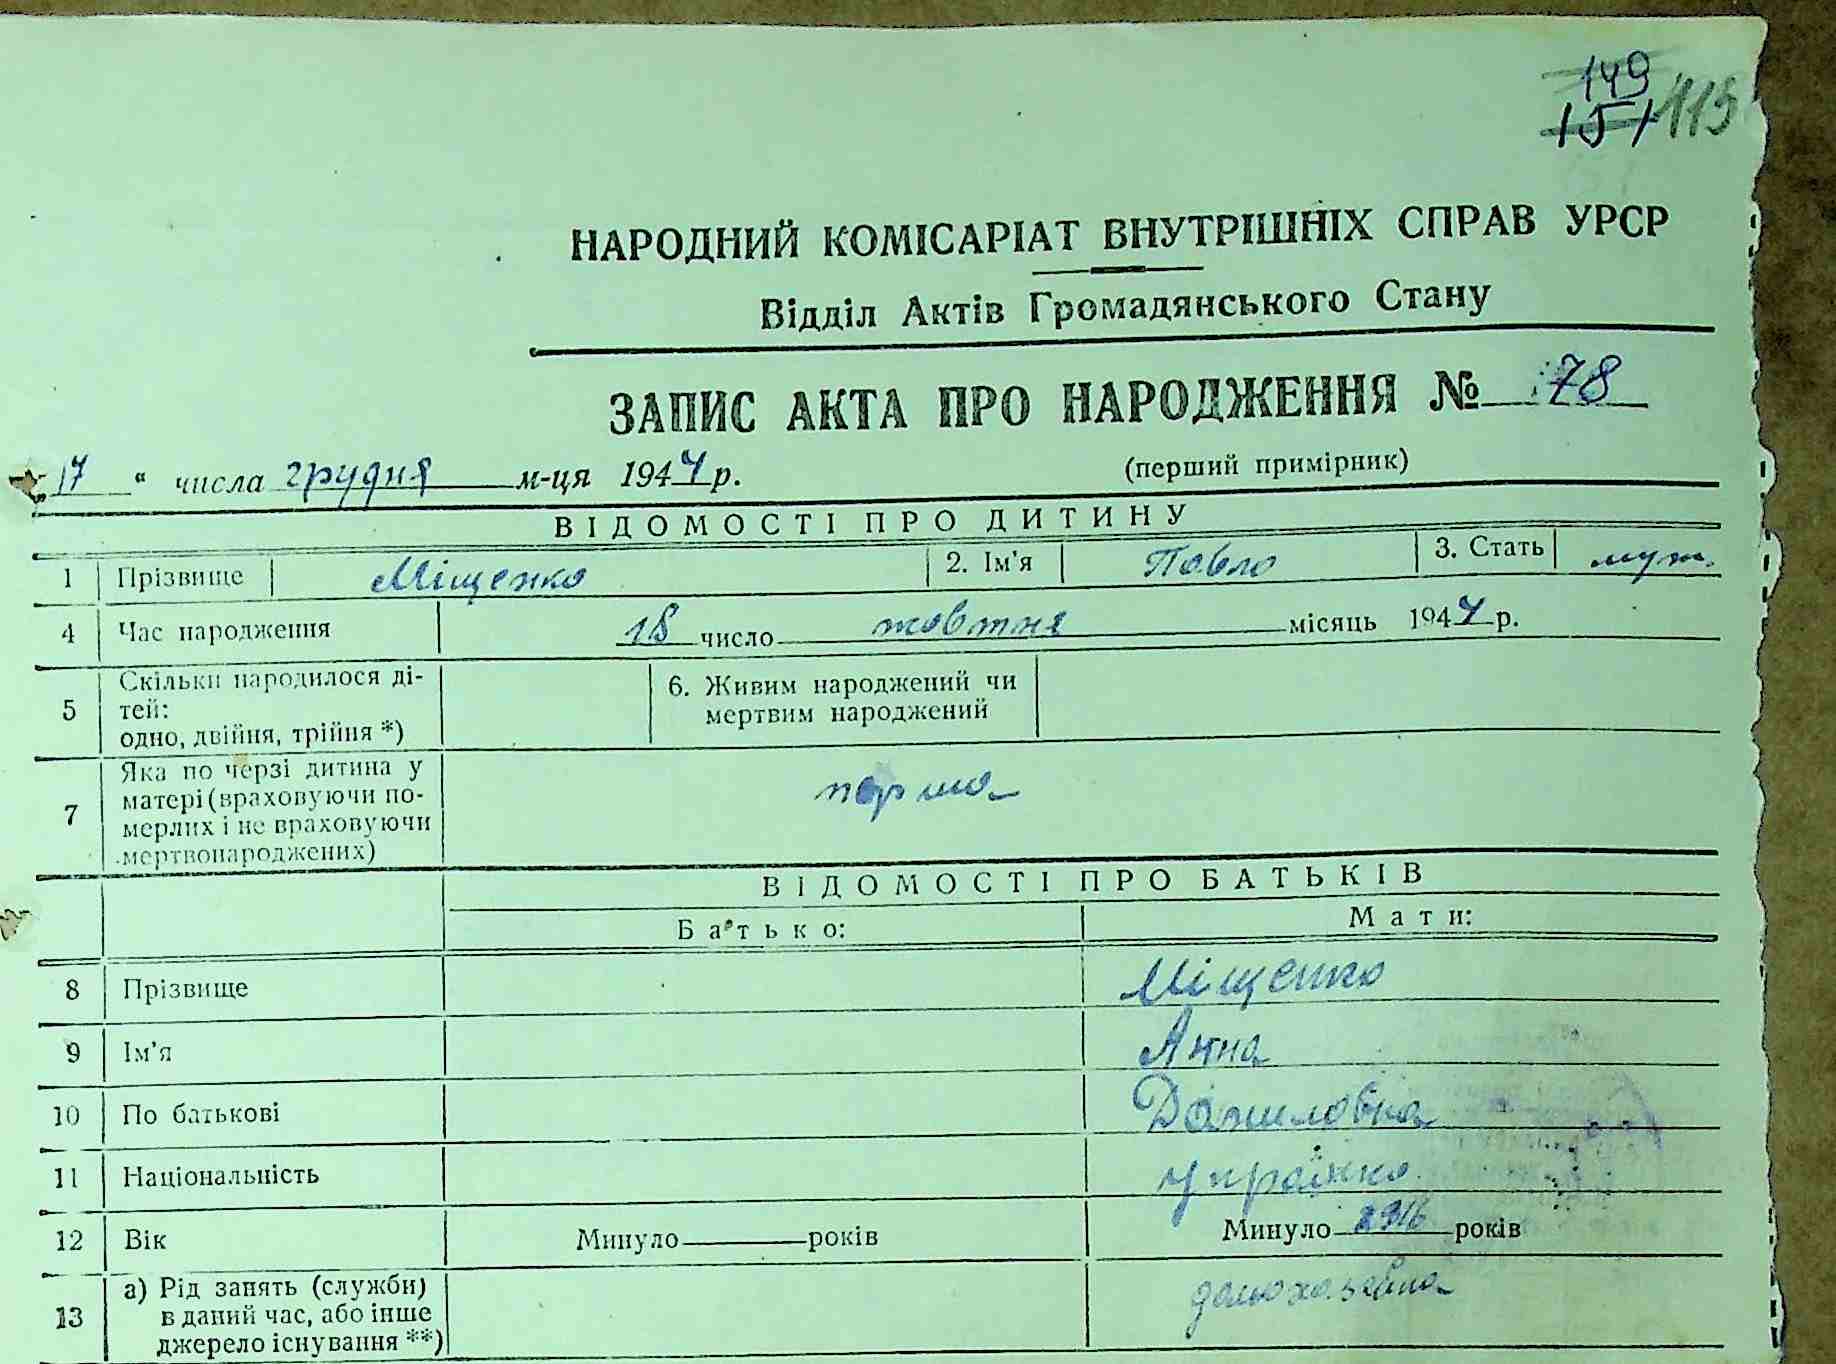 149
151 119
НАРОДНИЙ КОМІСАРІАТ ВНУТРІШНІХ СПРАВ УРСР
Відділ Актів Громадянського Стану
ЗАПИС АКТА ПРО НАРОДЖЕННЯ № 78
„17" числа грудня м-ця 1944 р. (перший примірник)
ВІДОМОСТІ ПРО ДИТИНУ
1 Прізвище Міщенко 2. Ім'я Павло 3. Стать муж.
4 Час народження 18 число жовтня місяць 1944 р.
5 Скільки народилося ді-
тей:
одно, двійня, трійня *)
6. Живим народжений чи
мертвим народжений
7 Яка по черзі дитина у
матері (враховуючи по-
мерлих і не враховуючи
мертвонароджених)
перша
ВІДОМОСТІ ПРО БАТЬКІВ
Батько: Мати:
8 Прізвище Міщенко
9 Ім'я Анна
10 По батькові Даниловна
11 Національність українка
12 Вік Минуло років Минуло років
13 а) Рід занять (служби)
в даний час, або інше
джерело існування **)
домохазяйка